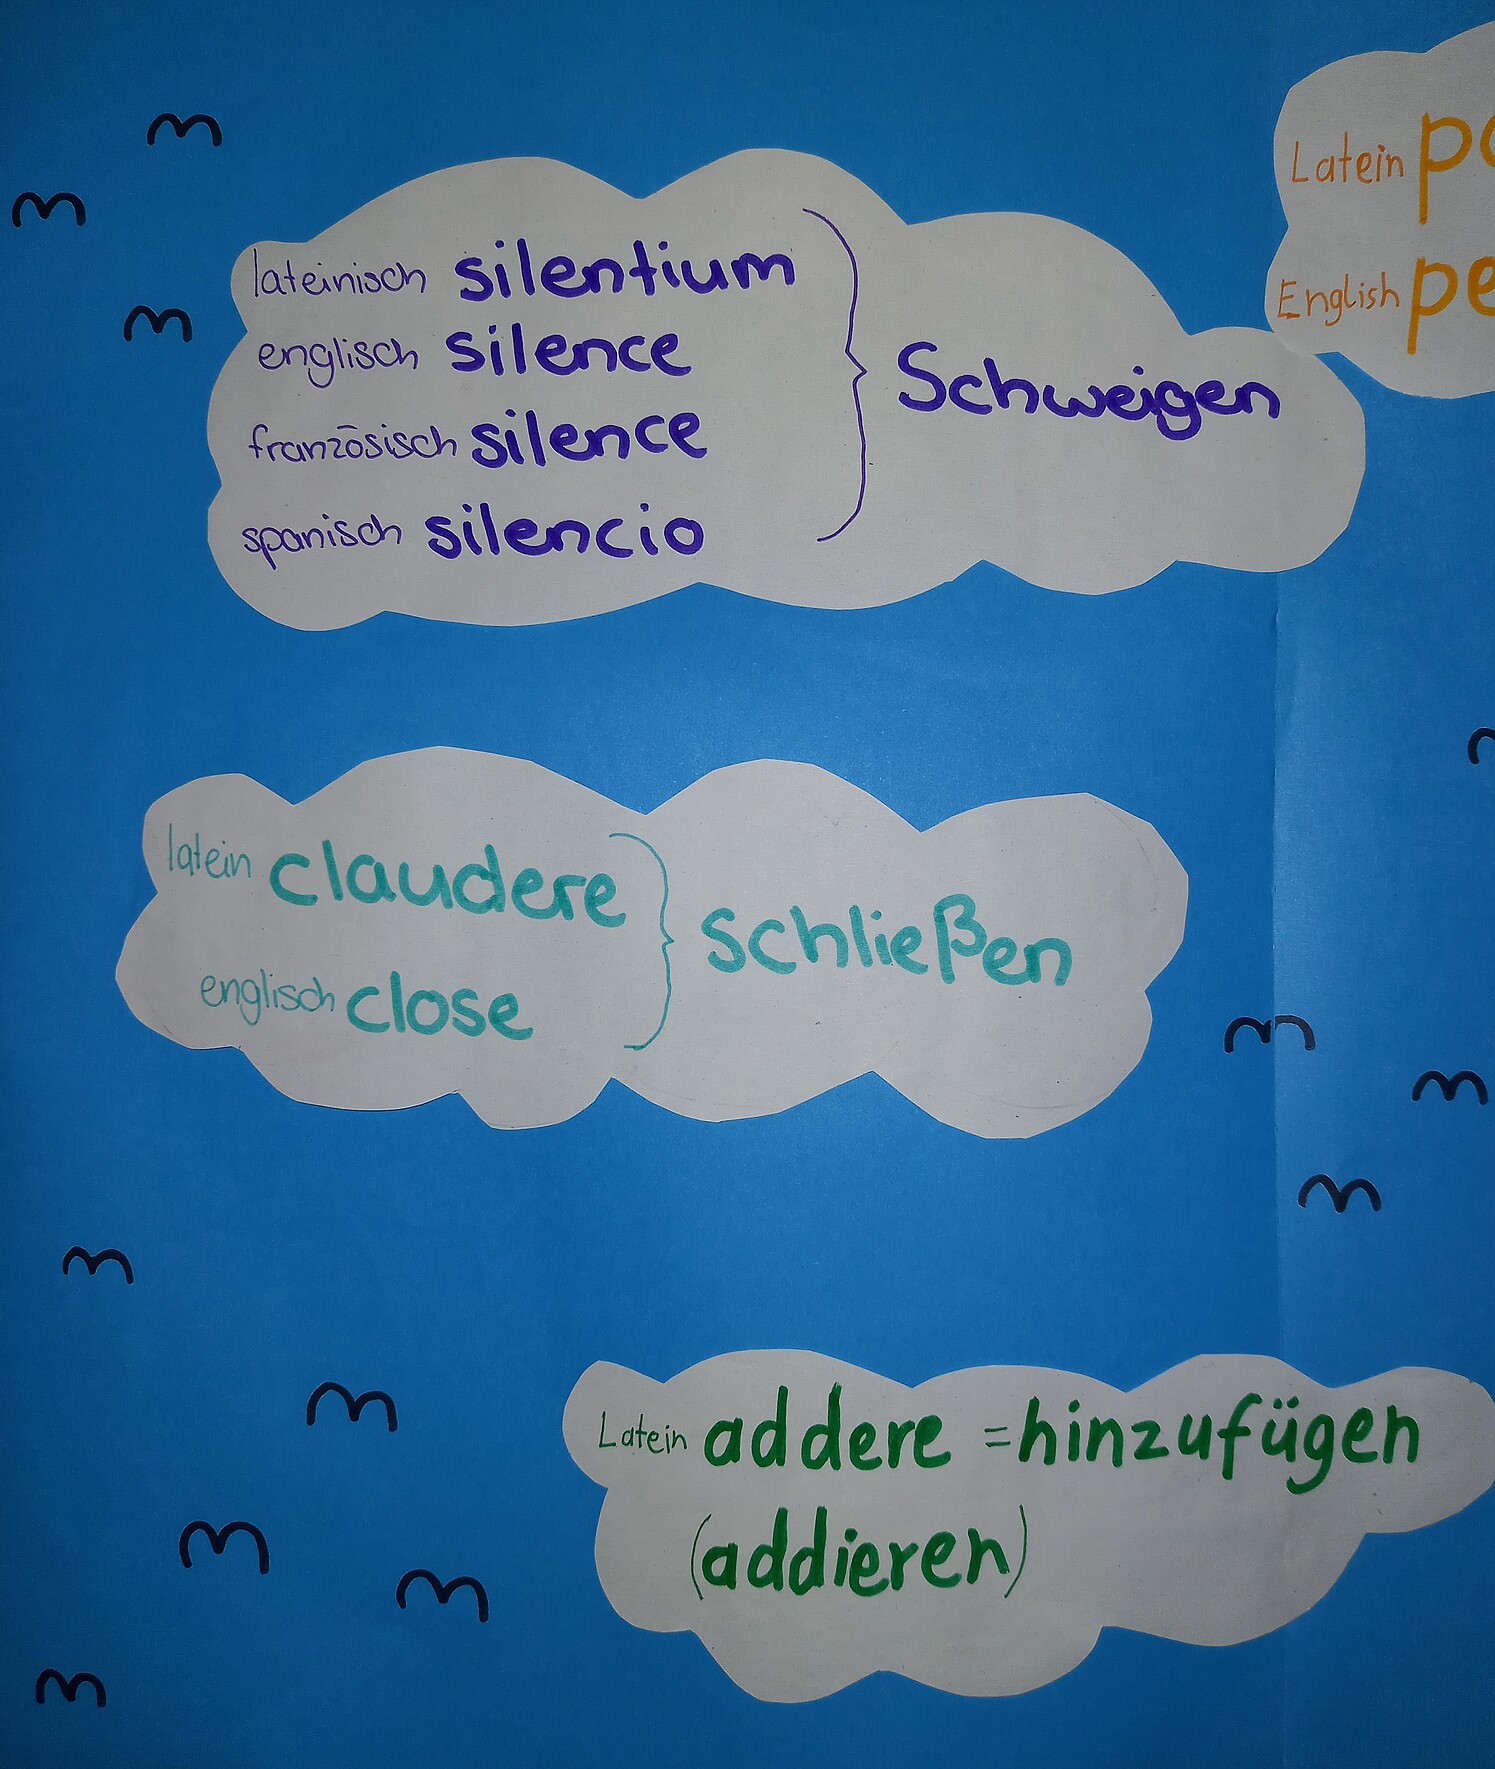 lateinisch silentium
englisch silence
französisch silence
spanisch silencio
Schweigen
Latein
English
latein claudere
englisch close
schließen
Latein addere = hinzufügen
(addieren)